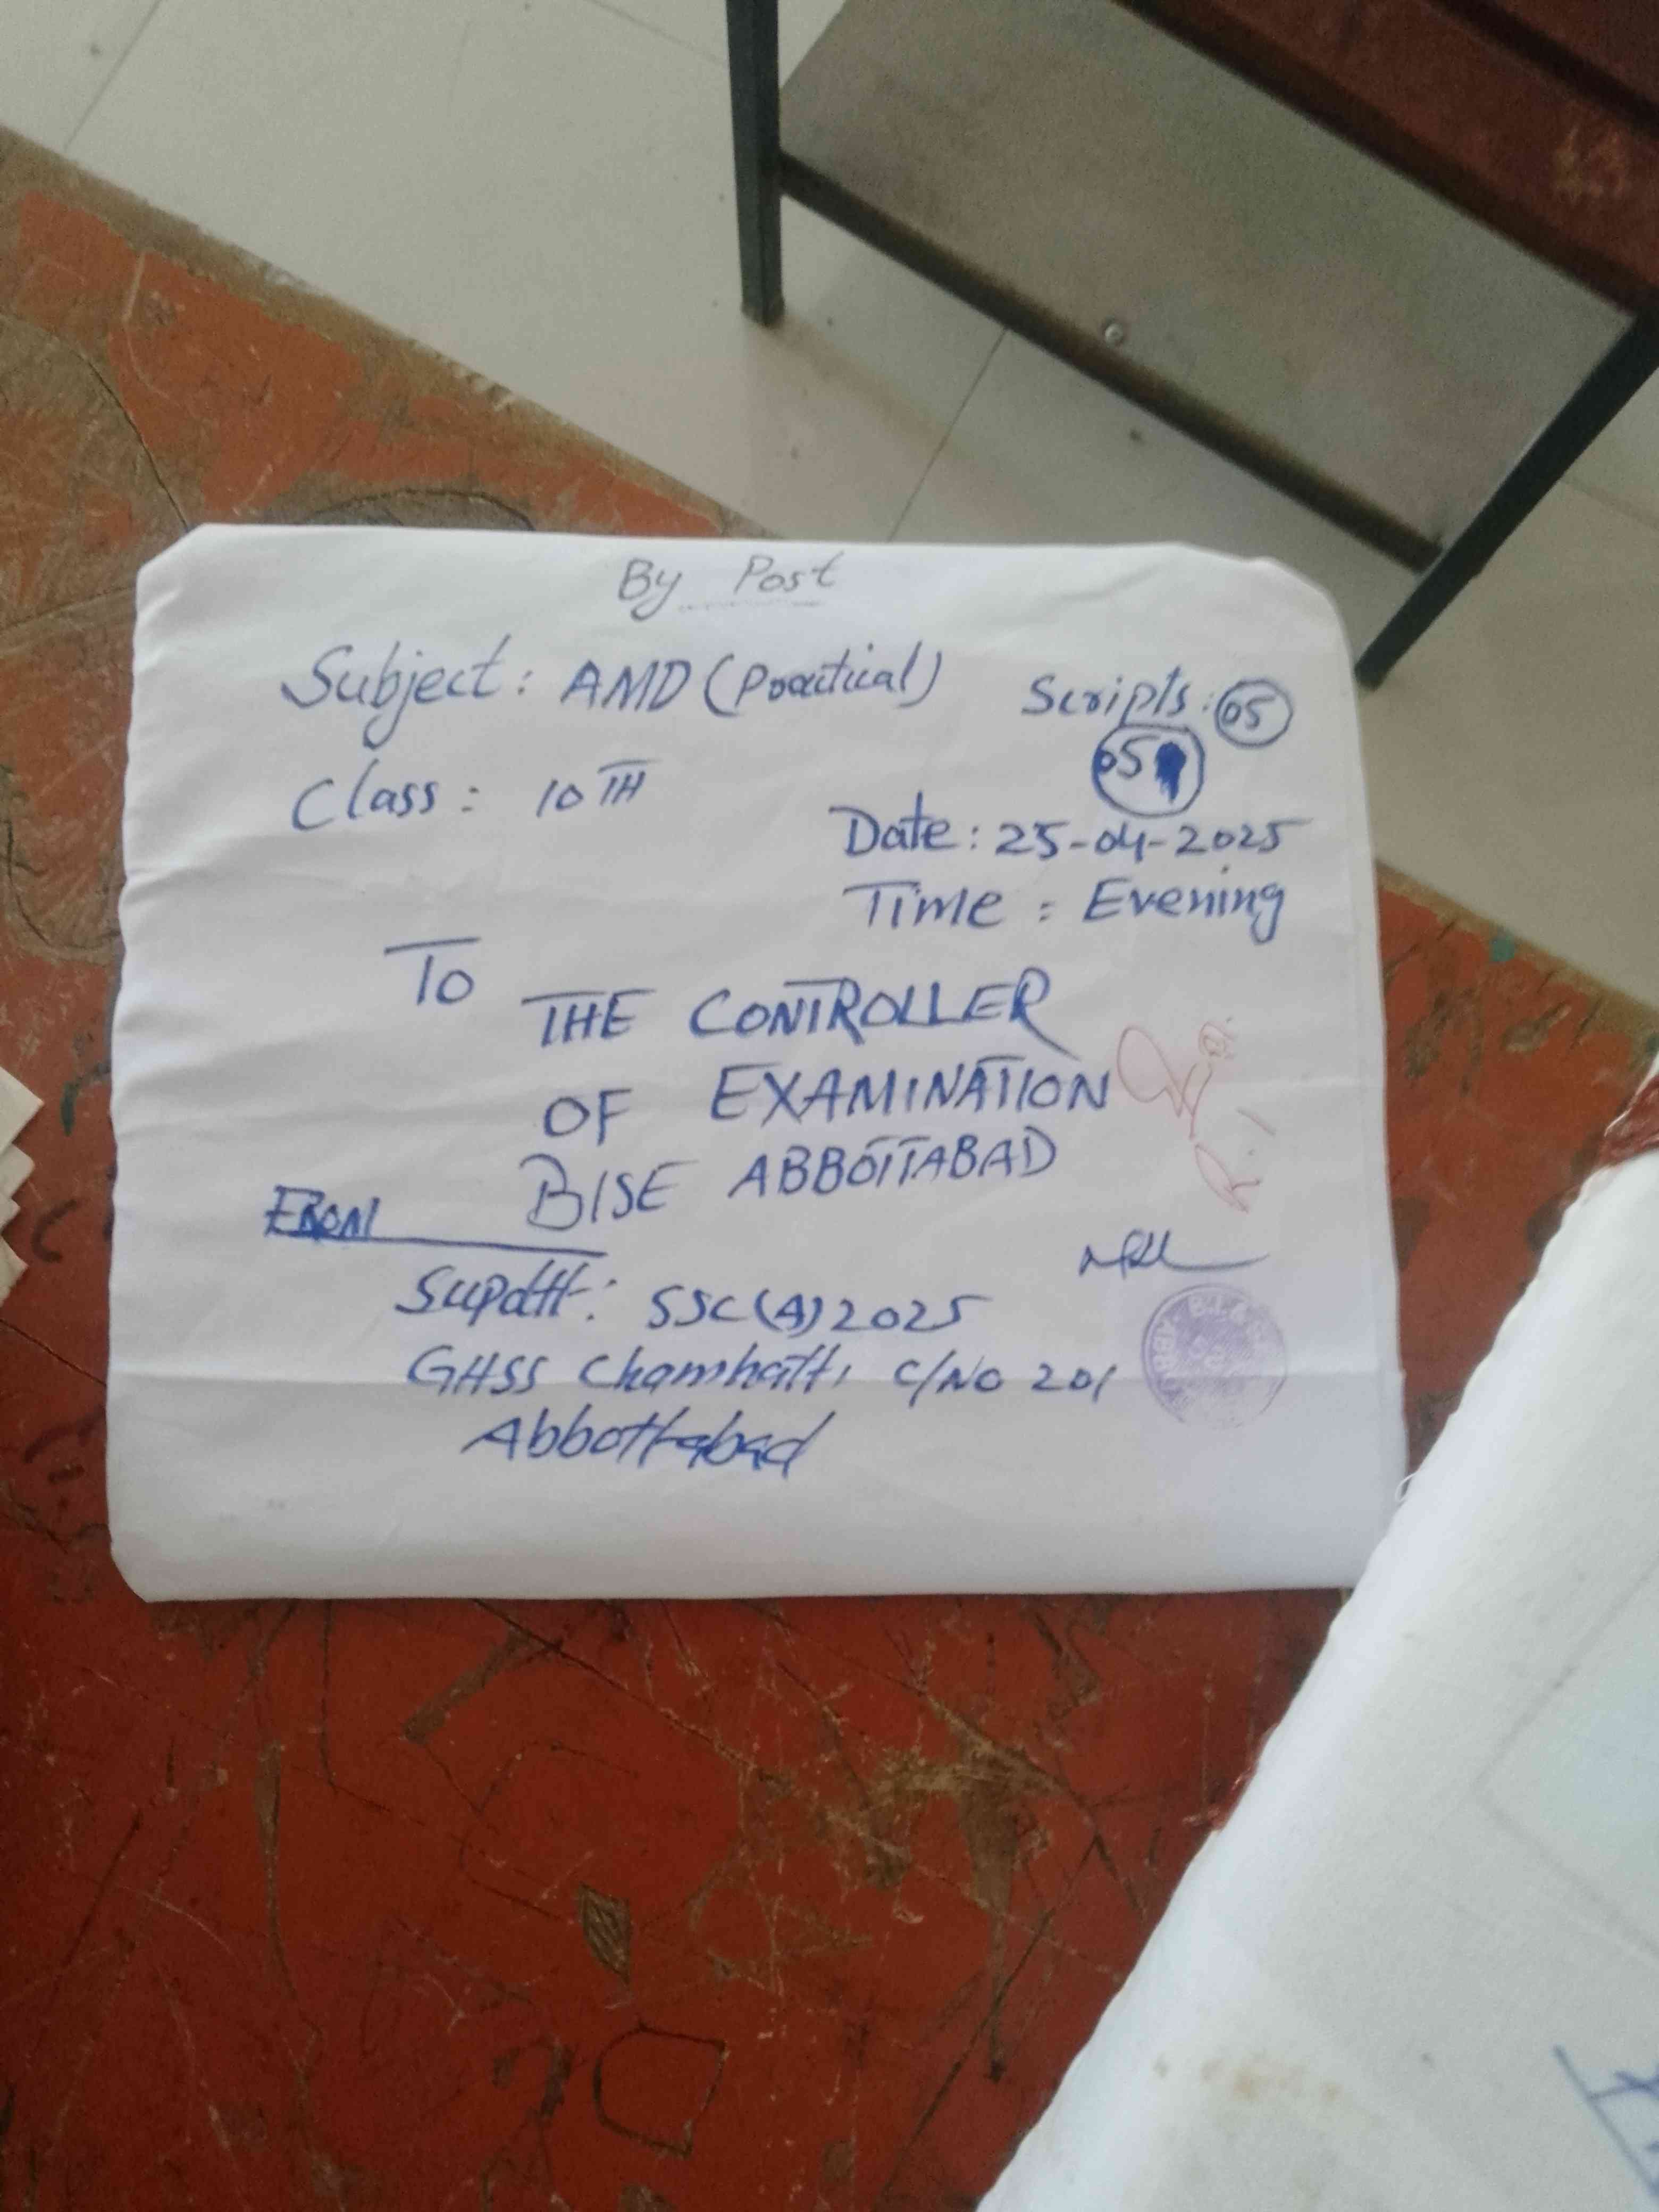 By Post
Subject: AMD (Practical) Scripts: 05
05
Class: 10TH
Date: 25-04-2025
Time: Evening
To
THE CONTROLLER
OF EXAMINATION
BISE ABBOTTABAD
R.I
FROM
Supdtt: SSC(A) 2025
GHSS Chamhatti C/NO 201
Abbottabad